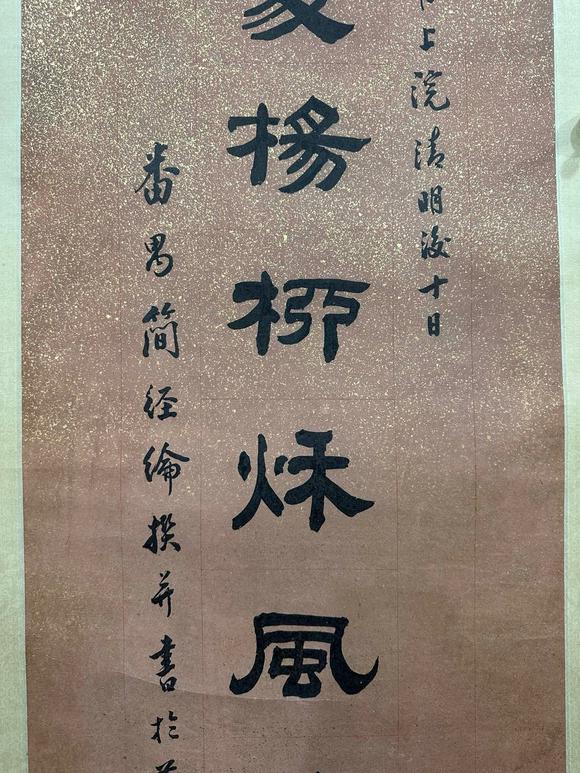 上浣清明後十日
楊柳秌風
番禺簡經綸撰并書於